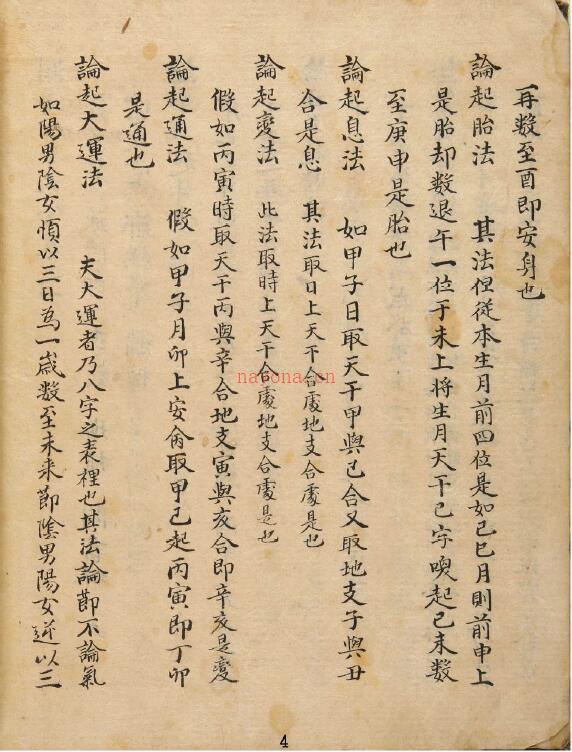 再数至酉即安身也
論起胎法 其法但從本生月前四位是如己巳月則前申上
是胎却数退午一位于未上将生月天干己字喚起己未数
至庚申是胎也
論起息法 如甲子日取天干甲與己合又取地支子與丑
合是息 其法取日上天干合處地支合處是也
論起変法 此法取時上天干合處地支合處是也
假如丙寅時取天干丙與辛合地支寅與亥合即辛亥是変
論起通法 假如甲子月卯上安命取甲己起丙寅即丁卯
是通也
論起大運法 夫大運者乃八字之表裡也其法論節不論氣
如陽男陰女順以三日為一歳数至未来節陰男陽女逆以三
nayona.cn
4